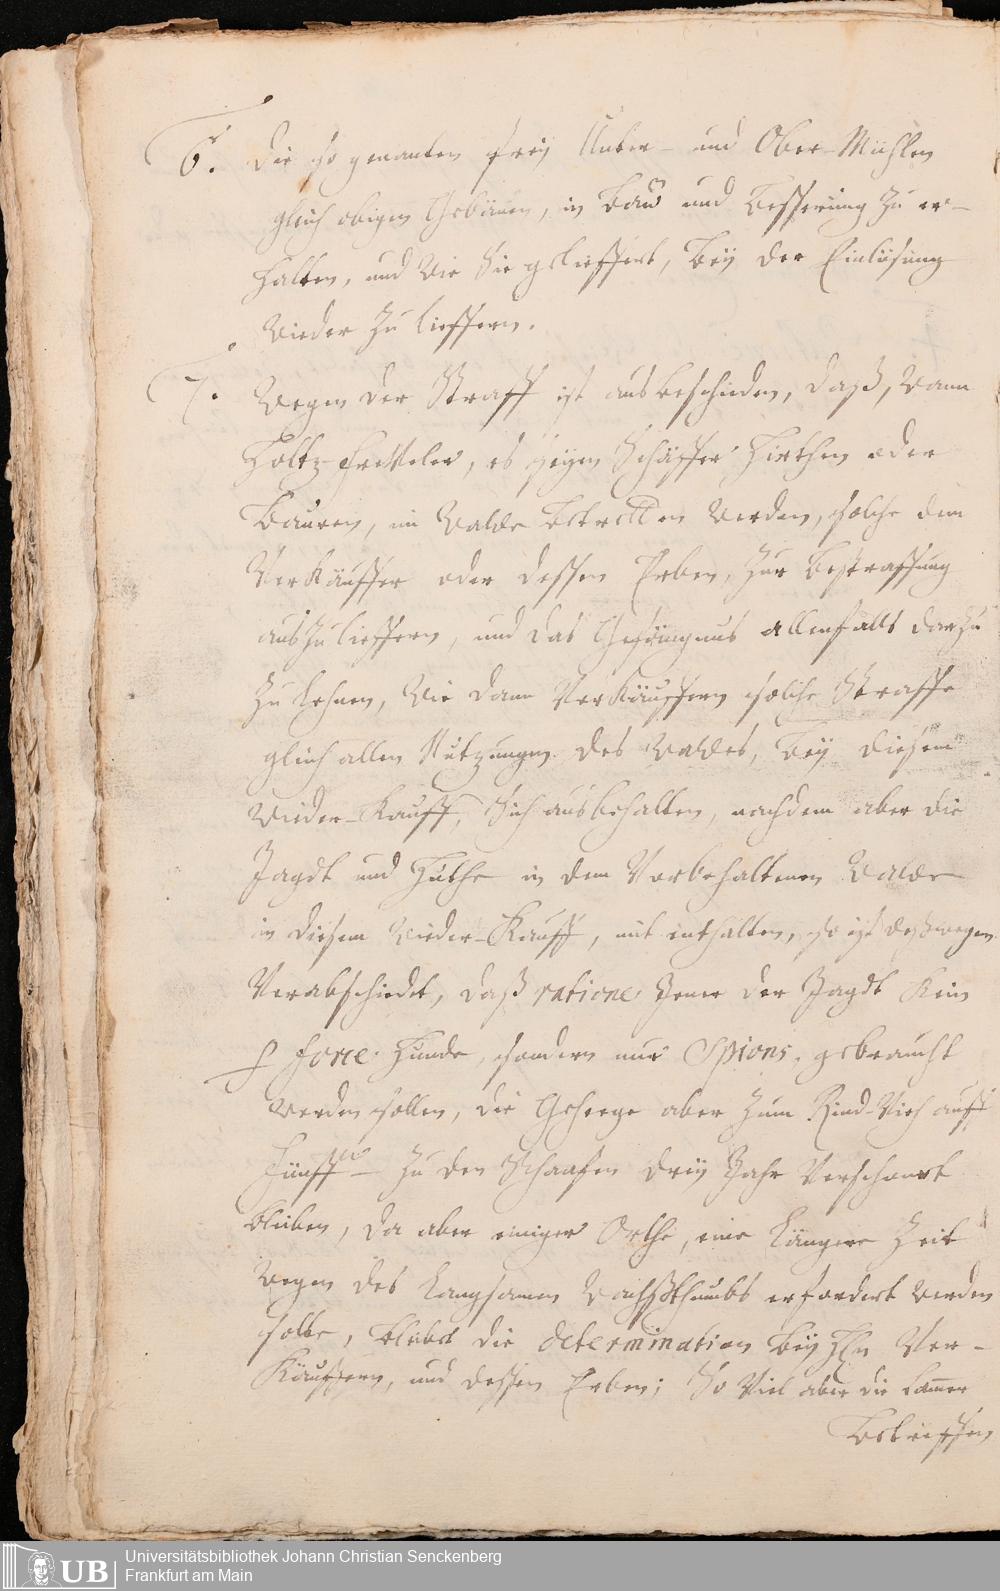 6. die so genanten frey Unter- und Ober-Mühlen
gleich obigen Gebäuen, in Bau und Besserung zu er-
halten, und wie sie geliefert, bey der Einlösung
wieder zu lieffern.
7. Wegen der Straff ist ausbeschieden, daß, wann
Holtz-freveler, es seyen Schäffer Hirthen oder
Bauren, im Walde betretten werden, solche dem
Verkäuffer oder dessen Erben, zur Bestraffung
auszulieffern, und das Gefängnus allenfalls darzu
zu lehnen, wie dann Verkäuffern solche Straffe
gleich allen Nutzungen des Waldes, bey diesem
Wieder-Kauff, sich ausbehalten, nachdem aber die
Jagdt und Huthe in dem Vorbehaltenen Walde
in diesem Wieder-Kauff, mit enthalten, so ist deßwegen
Verabschiedet, daß ratione jener der Jagdt kein
p force Hunde, sondern nur Spions, gebraucht
werden sollen, die Geheege aber zum Rind-Vieh auff
fünff- zu den Schaafen drey Jahr Verschont
bleiben, da aber einiger Orthe, eine längere Zeit
wegen des langsamen Wachßthumbs erfordert werden
solte, bleibet die determination bey Hn Ver-
käuffern, und dessen Erben; So Viel aber die
betreffen
Universitätsbibliothek Johann Christian Senckenberg
Frankfurt am Main
UB